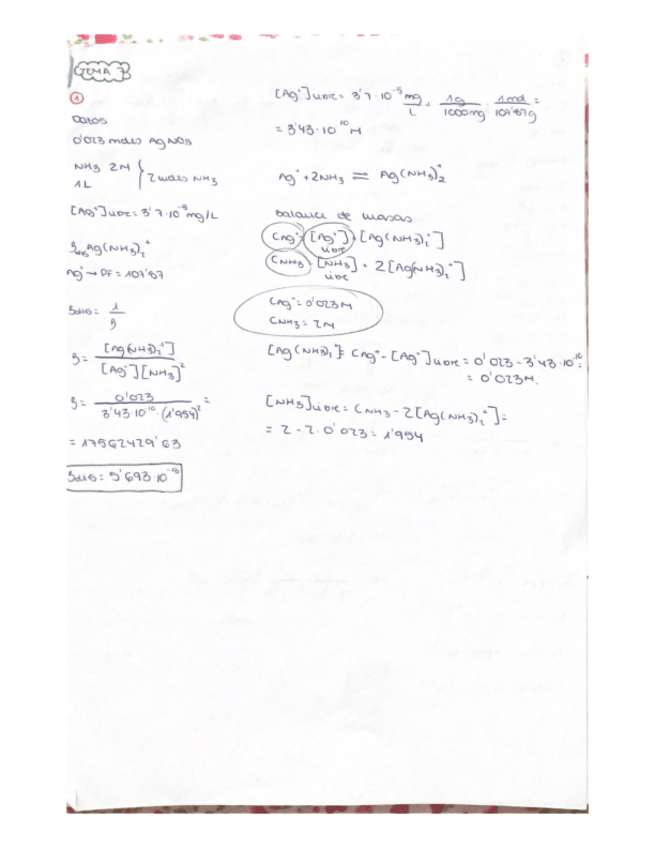 TEMA 7
1
Datos
0'023 moles AgNO3
NH3 2M
1L
2 moles NH3
[Ag⁺]libre = 3'7·10⁻⁵ mg/L
Ag(NH3)2⁺
Ag⁺ → PF = 107'87
βdis = 1/β
β = [Ag(NH3)2⁺] / [Ag⁺][NH3]²
β = 0'023 / 3'43·10⁻¹⁰·(1'954)² =
= 17562429'63
βdis = 5'693·10⁻⁸
[Ag⁺]libre = 3'7·10⁻⁵ mg/L · 1g/1000mg · 1mol/107'87g =
= 3'43·10⁻¹⁰ M
Ag⁺ + 2NH3 ⇌ Ag(NH3)2⁺
balance de masas
CAg⁺ = [Ag⁺]libre + [Ag(NH3)2⁺]
CNH3 = [NH3]libre + 2[Ag(NH3)2⁺]
CAg⁺ = 0'023M
CNH3 = 2M
[Ag(NH3)2⁺] = CAg⁺ - [Ag⁺]libre = 0'023 - 3'43·10⁻¹⁰ =
= 0'023M.
[NH3]libre = CNH3 - 2[Ag(NH3)2⁺] =
= 2 - 2·0'023 = 1'954